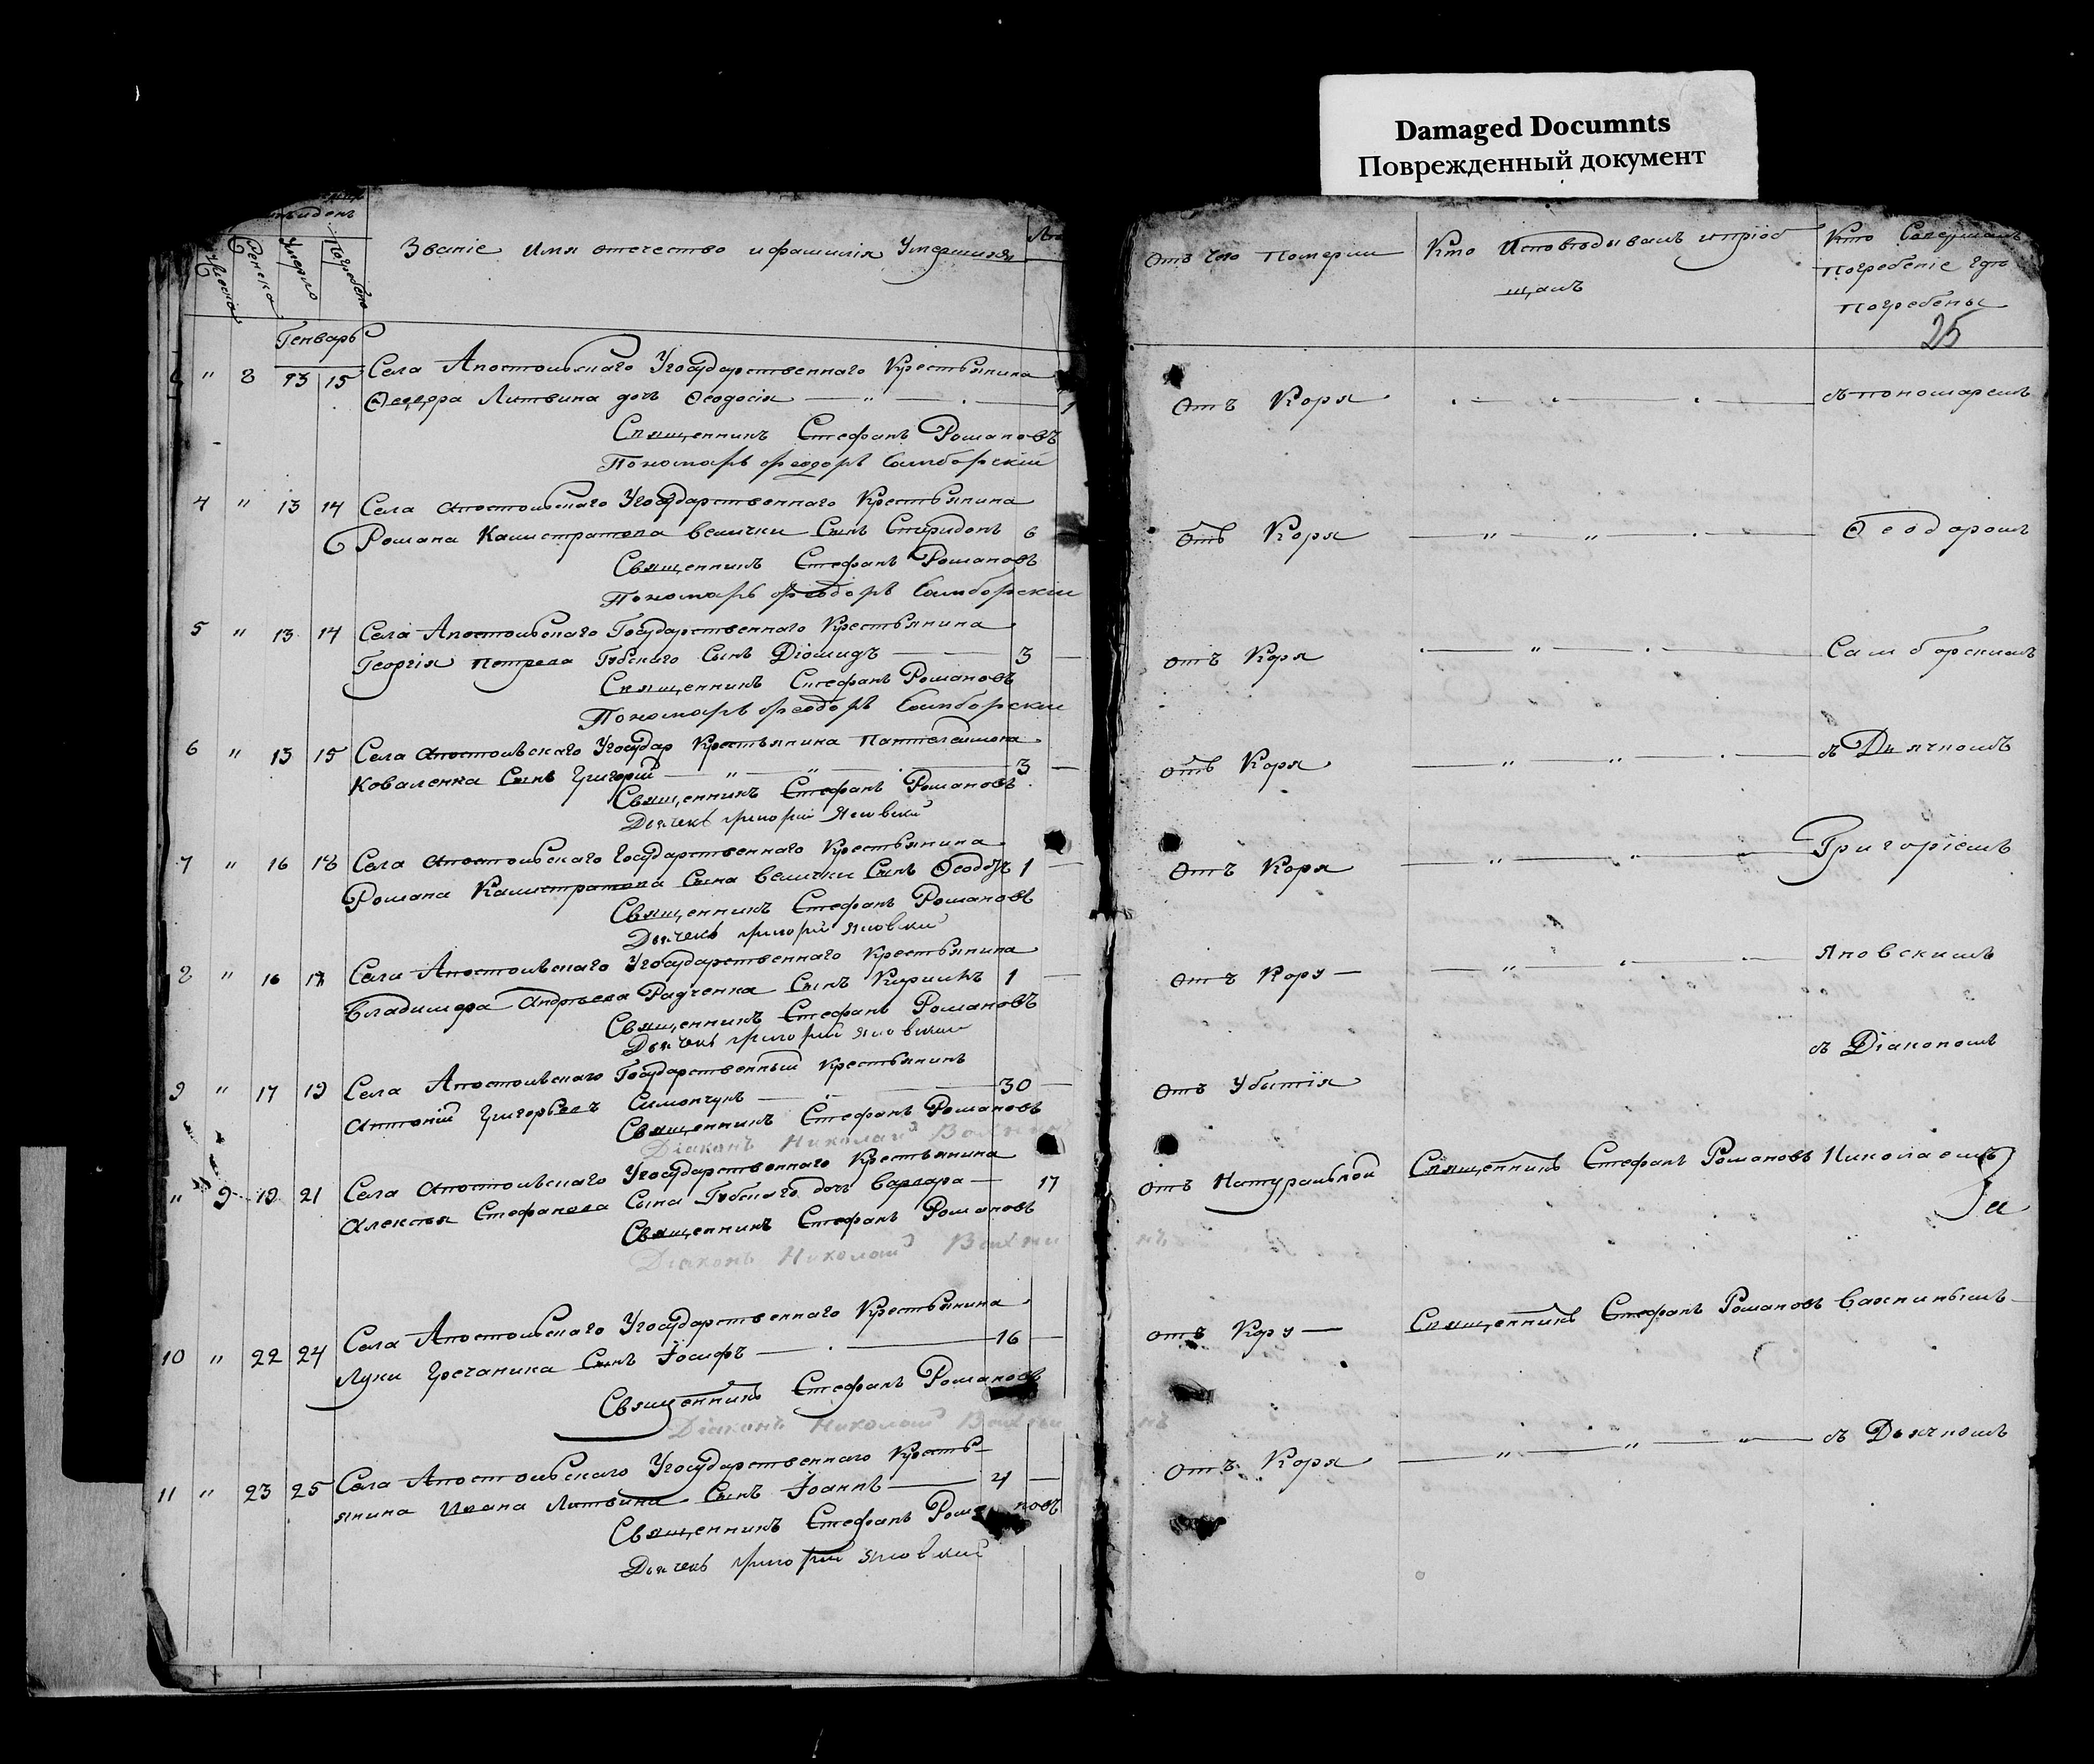 Damaged Documnts
Поврежденный документ
Званіе Имя отечество и фамилія Умершихъ
Умерло
Погребено
Генварь
Села Апостольскаго Угосударственнаго Крестьянина
" 8 13 15
Ѳеодора Литвина дочь Ѳеодосія — " — 1
Священникъ Стефанъ Романовъ
Пономарь Феодоръ Самборскій
4 " 13 14 Села Апостольскаго Угосударственнаго Крестьянина
Романа Калистратова Велички Сынъ Спиридонъ 6
Священникъ Стефанъ Романовъ
Пономарь Феодоръ Самборскій
5 " 13 14 Села Апостольскаго Государственнаго Крестьянина
Георгія Петрова Губскаго Сынъ Діомидъ — 3
Священникъ Стефанъ Романовъ
Пономарь Феодоръ Самборскій
6 " 13 15 Села Апостольскаго Угосудар Крестьянина Пантелеимона
Коваленка Сынъ Григорій — " — " — 3 —
Священникъ Стефанъ Романовъ
Дьячекъ Григорій Яновскій
7 " 16 18 Села Апостольскаго Государственнаго Крестьянина
Романа Калистратова Сына Велички Сынъ Ѳеодоръ 1 —
Священникъ Стефанъ Романовъ
Дьячекъ Григорій Яновскій
8 " 16 18 Села Апостольскаго Угосударственнаго Крестьянина
Владимера Андреева Радченка Сынъ Кирилъ 1 —
Священникъ Стефанъ Романовъ
Дьячекъ Григорій Яновскій
9 " 17 19 Села Апостольскаго Государственный Крестьянинъ
Антоній Григорьевъ Симончукъ — 30 —
Священникъ Стефанъ Романовъ
Діаконъ Николай
" 9 19 21 Села Апостольскаго Угосударственнаго Крестьянина
Алексѣя Стефанова Сына Губскаго дочь Варвара — 17
Священникъ Стефанъ Романовъ
Діаконъ Николай
10 " 22 24 Села Апостольскаго Угосударственнаго Крестьянина
Луки Гречаника Сынъ Іосифъ — 16 —
Священникъ Стефанъ Романовъ
Діаконъ Николай
11 " 23 25 Села Апостольскаго Угосударственнаго Кресть-
янина Ивана Литвина Сынъ Іоаннъ — 4 —
Священникъ Стефанъ Романовъ
Дьячекъ Григорій Яновскій
Отъ чего Померли
Кто Исповѣдывалъ и пріоб
щалъ
Кто Совершалъ
Погребеніе гдѣ
Погребены
25
Отъ Коря — съ пономаремъ
Отъ Коря — " — " — Ѳеодоромъ
Отъ Коря — " — Самборскимъ
Отъ Коря — " — " — съ Дьячкомъ
Отъ Коря — " — " — Григоріемъ
Отъ Кору — " — Яновскимъ
съ Діакономъ
Отъ Убитія
Отъ Натуральной Священникъ Стефанъ Романовъ Николаемъ
Отъ Кору — Священникъ Стефанъ Романовъ
Отъ Коря — " — " — " — съ Дьячкомъ